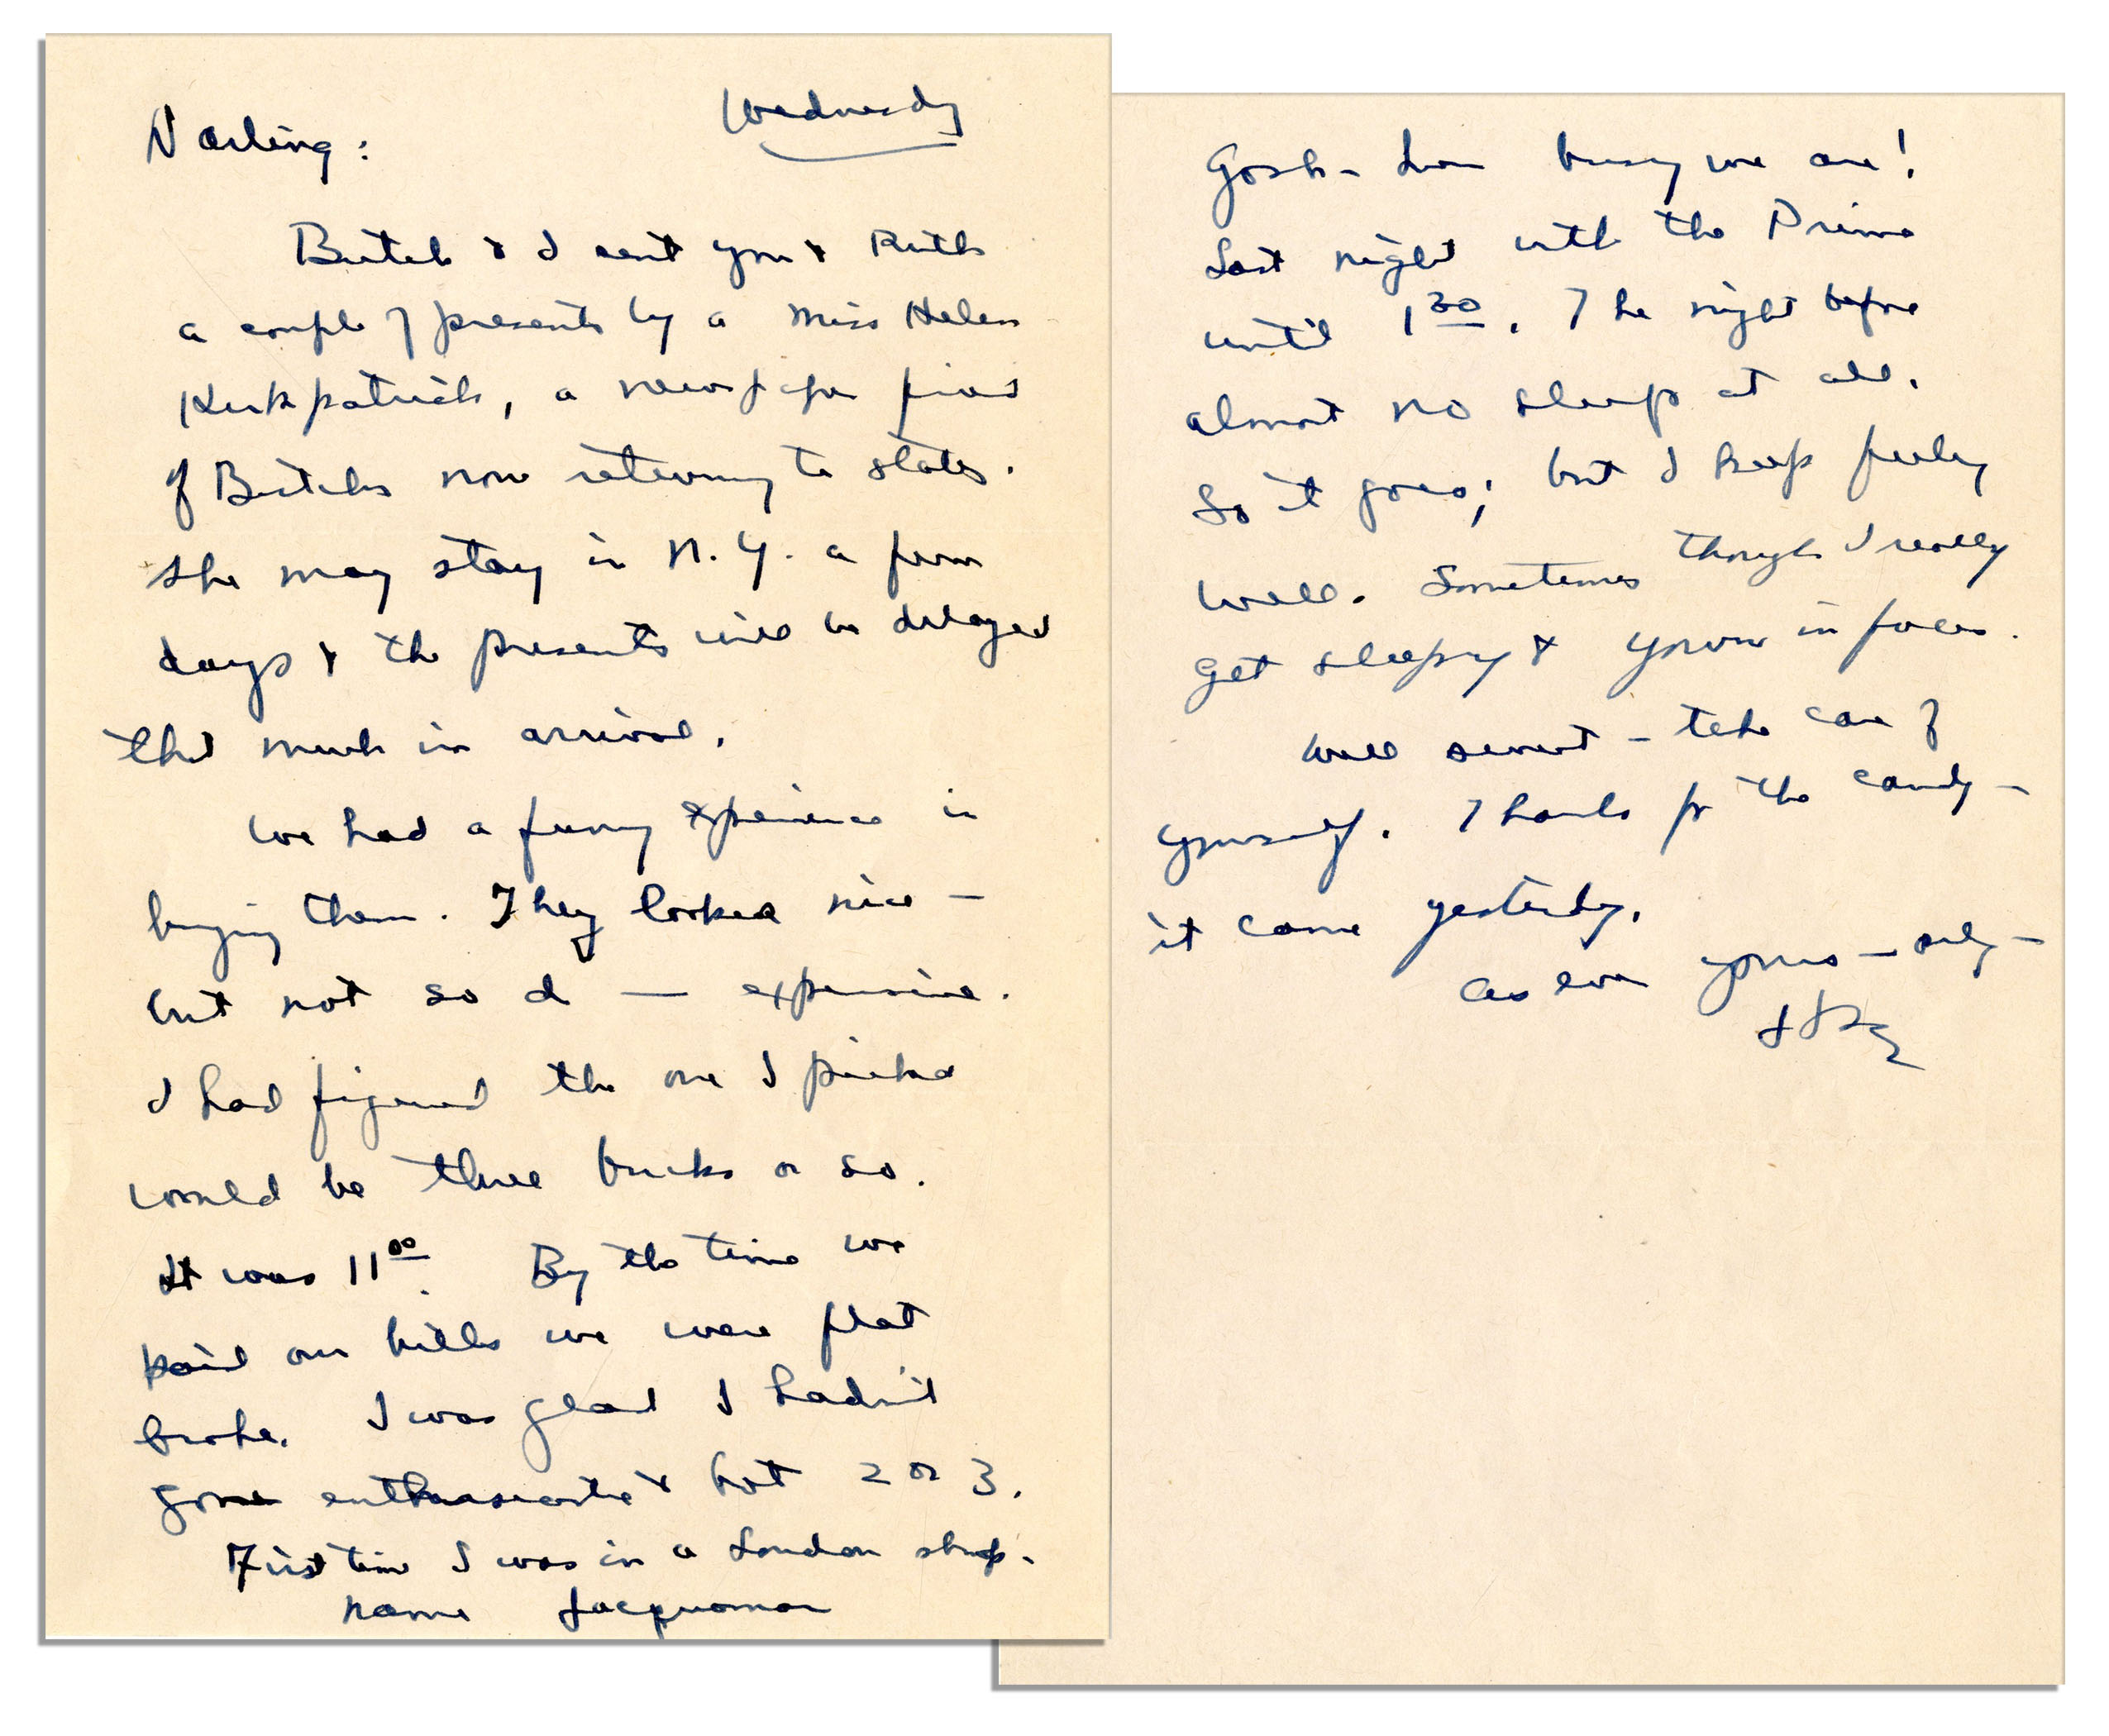 Wednesday
Darling:
Butch & I sent you & Ruth
a couple of presents by a Miss Helen
Kirkpatrick, a newspaper friend
of Butch's now returning to states.
She may stay in N.Y. a few
days & the presents will be delayed
that much in arrival.
We had a funny experience in
buying them. They looked nice —
but not so d — expensive.
I had figured the one I picked
would be three bucks or so.
It was 11 00. By the time we
paid our bills we were flat
broke. I was glad I hadn't
gone enthusiastic & bot 2 or 3.
First time I was in a London shop.
name Jacqumar
Gosh - how busy we are!
Last night with the Prime
until 1 30. The night before
almost no sleep at all.
So it goes; but I keep feeling
well. Sometimes though I really
get sleepy & yawn in faces.
Well sweet - take care of
yourself. Thanks for the candy -
it came yesterday.
As ever yours - only -